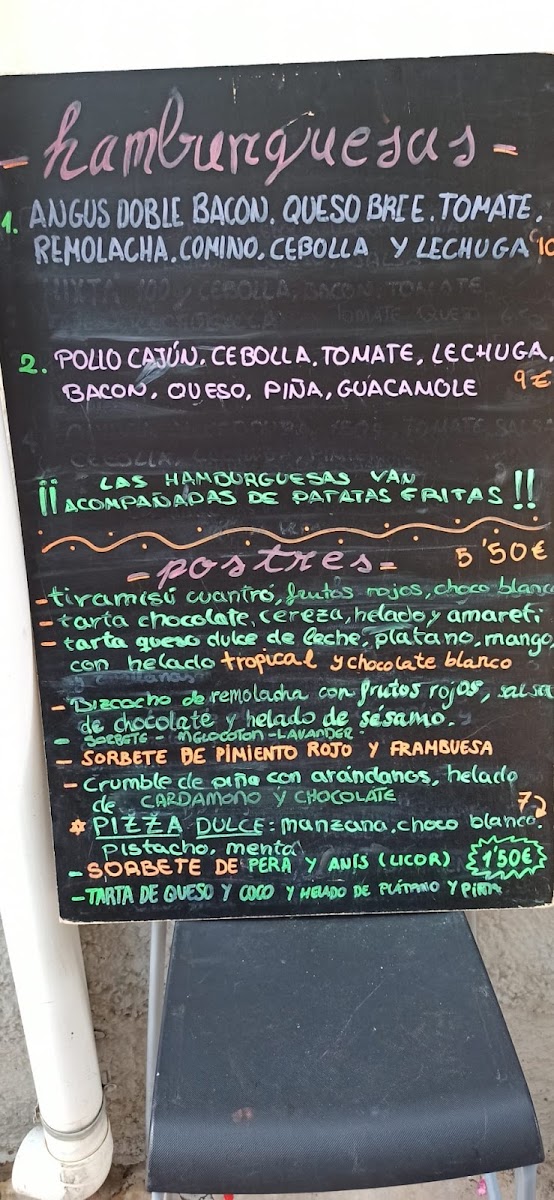 - hamburguesas -
1. ANGUS DOBLE BACON, QUESO BREE, TOMATE,
REMOLACHA, COMINO, CEBOLLA Y LECHUGA 10
CEBOLLA, BACON, TOMATE
TOMATE QUESO
2. POLLO CAJÚN, CEBOLLA, TOMATE, LECHUGA,
BACON, QUESO, PIÑA, GUACAMOLE 9€
¡¡ LAS HAMBURGUESAS VAN
ACOMPAÑADAS DE PATATAS FRITAS !!
- postres - 5'50€
- tiramisú cuantró, frutos rojos, choco blanc
- tarta chocolate, cereza, helado y amareti
- tarta queso dulce de leche, platano, mango,
con helado tropical y chocolate blanco
- Bizcocho de remolacha con frutos rojos, salsa
de chocolate y helado de sésamo.
- SORBETE - MELOCOTON - LAVANDER
- SORBETE DE PIMIENTO ROJO Y FRAMBUESA
- crumble de piña con arándanos, helado
de CARDAMONO Y CHOCOLATE 7
* PIZZA DULCE: manzana, choco blanco.
Pistacho, menta
- SORBETE DE PERA Y ANÍS (LICOR) 1'50€
- TARTA DE QUESO Y COCO Y HELADO DE PLÁTANO Y PIÑA